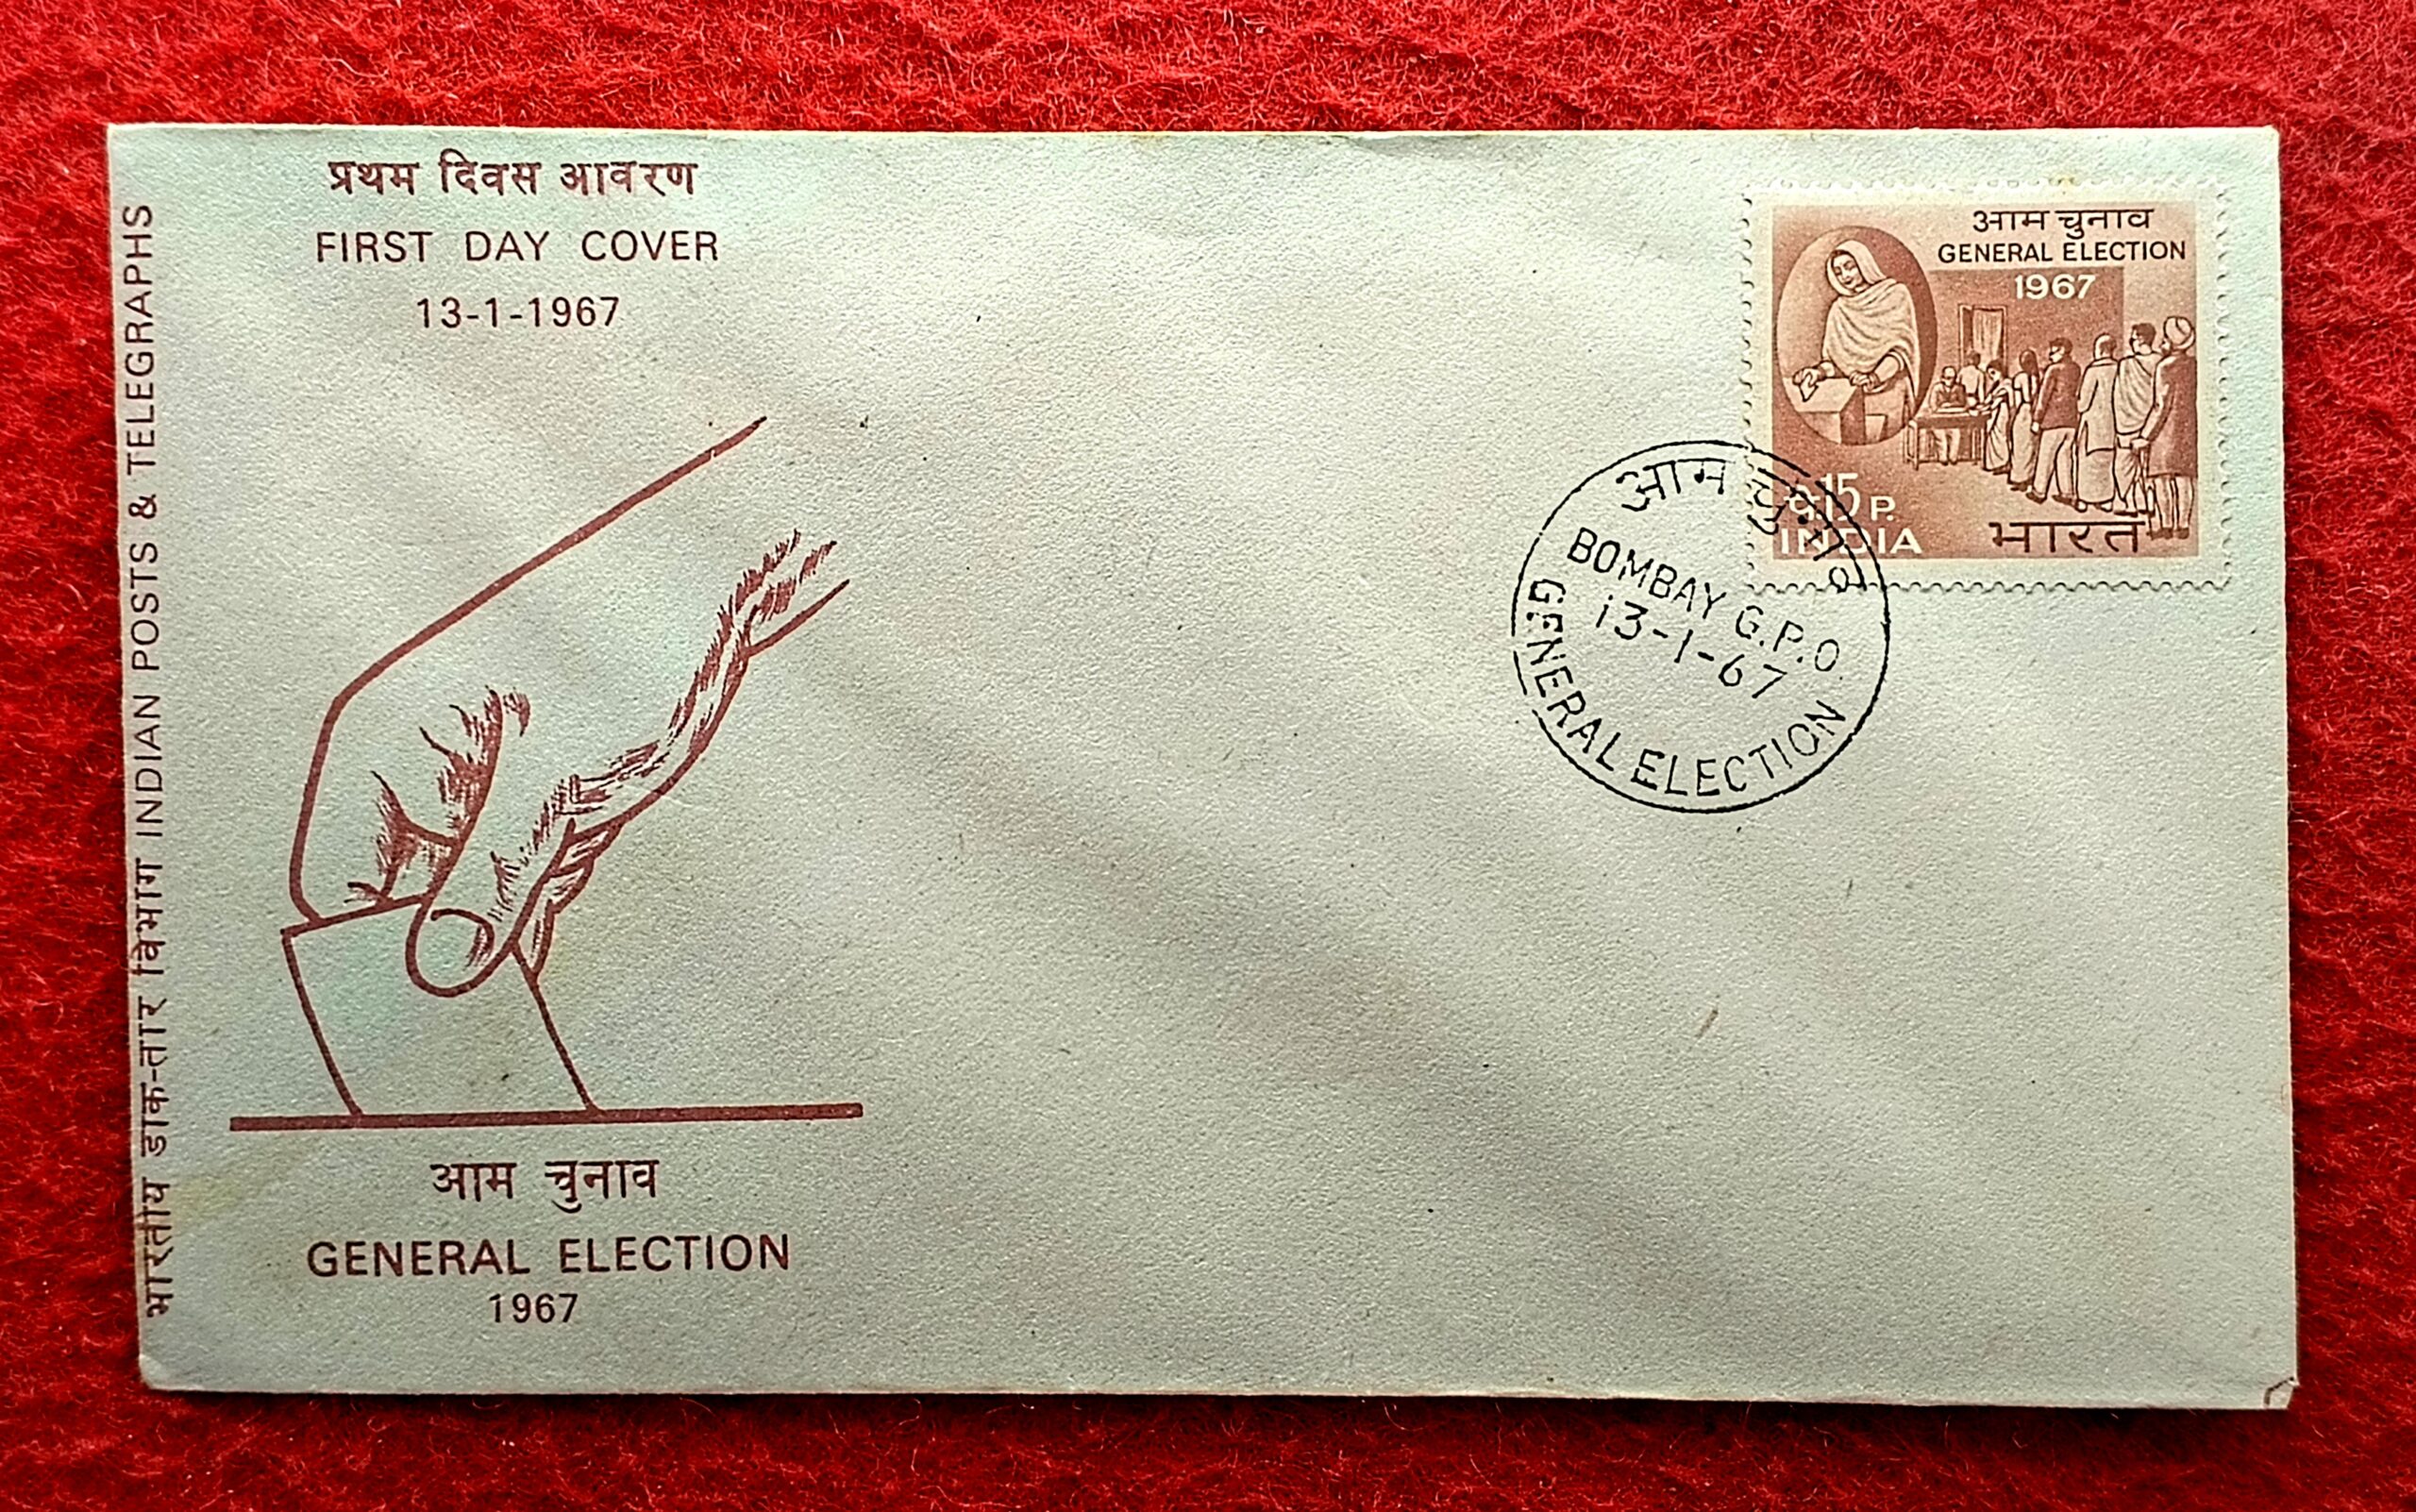 प्रथम दिवस आवरण
FIRST DAY COVER
13-1-1967
भारतीय डाक-तार विभाग INDIAN POSTS & TELEGRAPHS
आम चुनाव
GENERAL ELECTION
1967
आम चुनाव
GENERAL ELECTION
1967
पै.15 P.
INDIA भारत
आम चुनाव
BOMBAY G.P.O.
13-1-67
GENERAL ELECTION